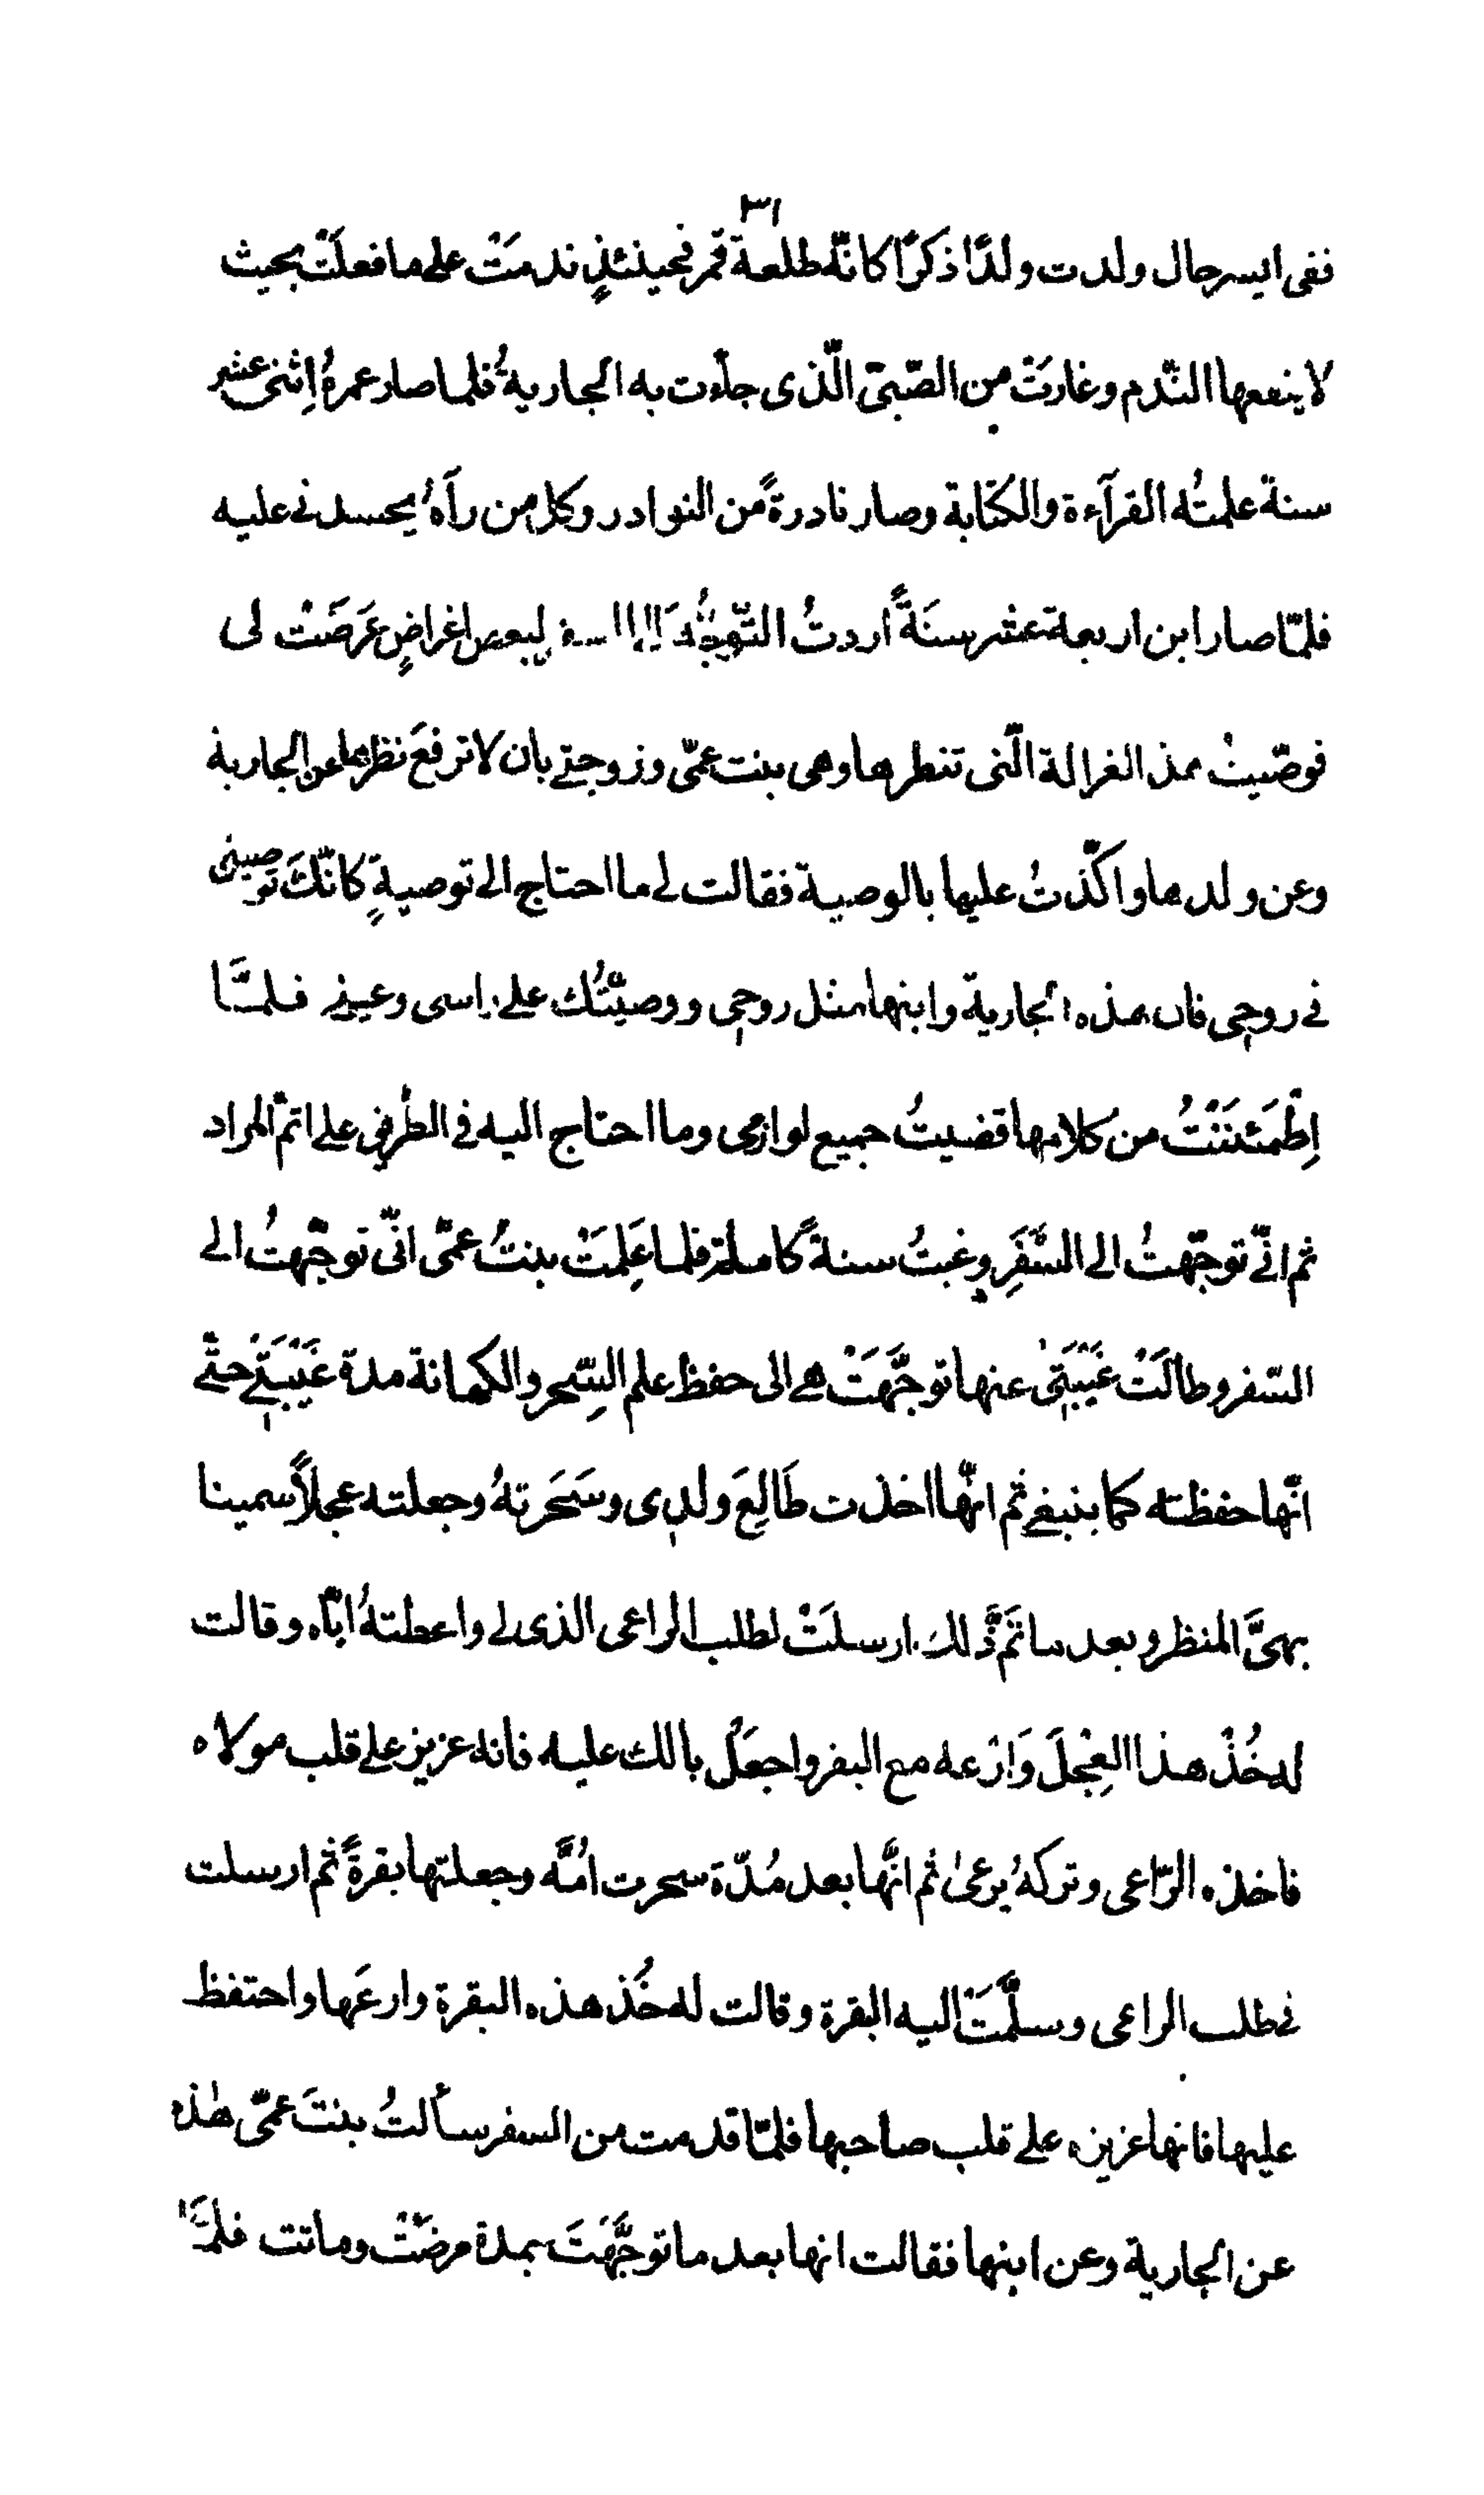 ٣١
ففى ايسر حال ولدت ولدًا ذكرًا كانّه طلعة قمر فحينئذٍ ندمَتْ على ما فعلَتْ بحيث
لا ينفعها النّدم وغارَتْ مِن الصّبىّ الّذى جآءت به الجاريةُ فلما صار عمرهُ اِثنى عشر
سنة علمتُه القرآءة والكتابة وصار نادرةً من النوادر وكل من رآهُ يحسدنى عليه
فلمّا صار ابن اربعة عشر سنَةً اردتُ التّوجُّهَ لبعض اغراضٍ عَرضَتْ لى
فوصّيتُ هذ الغزالة الّتى تنظرها وهى بنت عمّى وزوجتى بان لا ترفعَ نظرها عن الجارية
وعن ولدها واكّدتُ عليها بالوصية فقالت لى ما احتاج الى توصيةٍ كانّكَ توصينى
فى روحِى فان هذه الجارية وابنها مثل روحِى ووصيّتُك على راسى وعينى فلمّا
اِطْمَئنَنْتُ من كلامِها قضيتُ جميع لوازمى وما احتاج اليه فى الطُرقِ على اتمّ المراد
ثم انّى توجّهتُ الى السَّفَرِ وغبتُ سنةً كاملة فلما عَلِمَتْ بنتُ عمّى انّى توجّهتُ الى
السّفر وطالَتْ غَيْبَتِىْ عنها توجَّهَتْ هى الى حفظ علم السِّحر والكهانة مدة غَيْبَتِىْ حتّى
انّها حفظته كما ينبغى ثم انّها اخذت طَالِعَ ولدِى وسَحَرتهُ وجعلته عجلاً سمينا
بهىَّ المنظر وبعد ما تَمَّ ذلكَ ارسلَتْ لطلب الراعى الذى لى واعطتهُ ايّاه وقالت
له خُذْ هذا العِجْلَ وَارْعه مع البقر واجعَلْ بالك عليه فانه عزيز على قلب مولاه
فاخذه الرّاعى وتركهُ يرعىٰ ثم انّها بعد مُدّة سحرت امُّه وجعلتها بقرةً ثم ارسلت
فى طلب الراعى وسلَّمَتْ اليه البقرة وقالت له خُذ هذه البقرة وارعَها واحتفظ
عليها فانها عزيزه على قلب صاحبها فلمّا قدمت من السفر سألتُ بنتَ عمّى هٰذه
عن الجارية وعن ابنها فقالت انها بعد ما توجَّهَتَ بمدة مرضَتْ وماتت فلمَّا